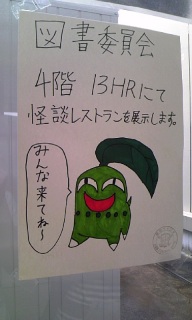 図書委員会
4階 13HRにて
怪談レストランを展示します。
みんな来てね〜